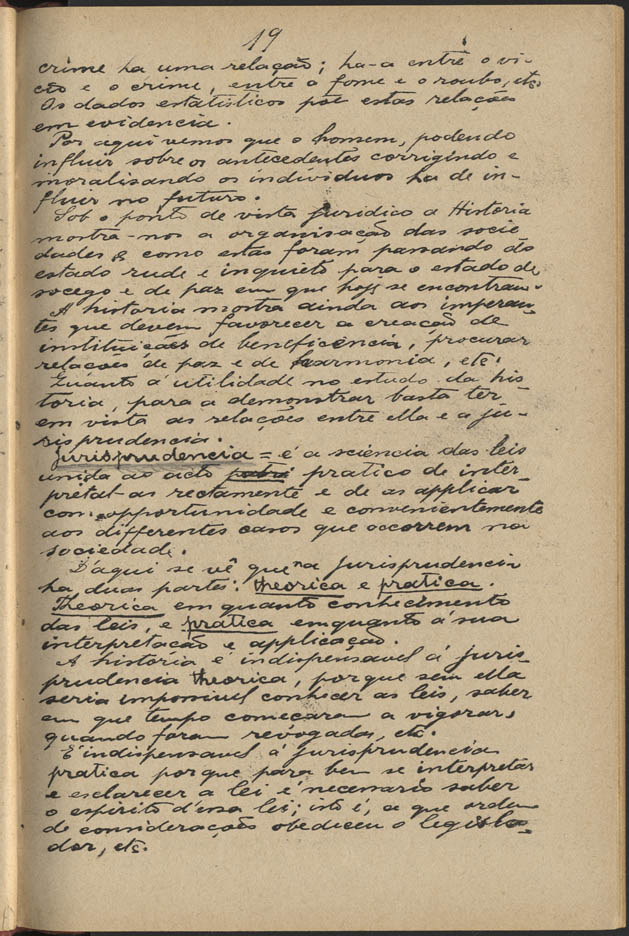 19
crime ha uma relação; ha-a entre o vi-
cio e o crime, entre a fome e o roubo, etc.
Os dados estatisticos põe estas relações
em evidencia.
Por aqui vemos que o homem, podendo
influir sobre os antecedentes corrigindo e
moralisando os individuos ha de in-
fluir no futuro.
Sob o ponto de vista juridico a Historia
mostra-nos a organisação das socie-
dades e como estas foram passando do
estado rude e inquieto para o estado de
socego e de paz em que hoje se encontram.
A historia mostra ainda aos imperan-
tes que devem favorecer a creação de
instituições de beneficencia, procurar
relações de paz e de harmonia, etc.
Quanto á utilidade no estudo da his
toria, para a demonstrar basta ter
em vista as relações entre ella e a ju-
risprudencia.
Jurisprudencia = é a sciencia das leis
unida ao acto pratico de inter-
pretal-as rectamente e de as applicar
com opportunidade e convenientemente
aos differentes casos que occorrem na
sociedade.
D'aqui se vê que na Jurisprudencia
ha duas partes: theorica e pratica.
Theorica em quanto conhecimento
das leis, e pratica emquanto á sua
interpretação e applicação.
A historia é indispensavel á juris-
prudencia theorica, porque sem ella
seria impossivel conhecer as leis, saber
em que tempo começaram a vigorar,
quando foram revogadas, etc.
E' indispensavel á jurisprudencia
pratica porque para bem se interpretar
e esclarecer a lei é necessario saber
o espirito d'essa lei; isto é, a que ordem
de considerações obedeceu o legisla-
dor, etc.